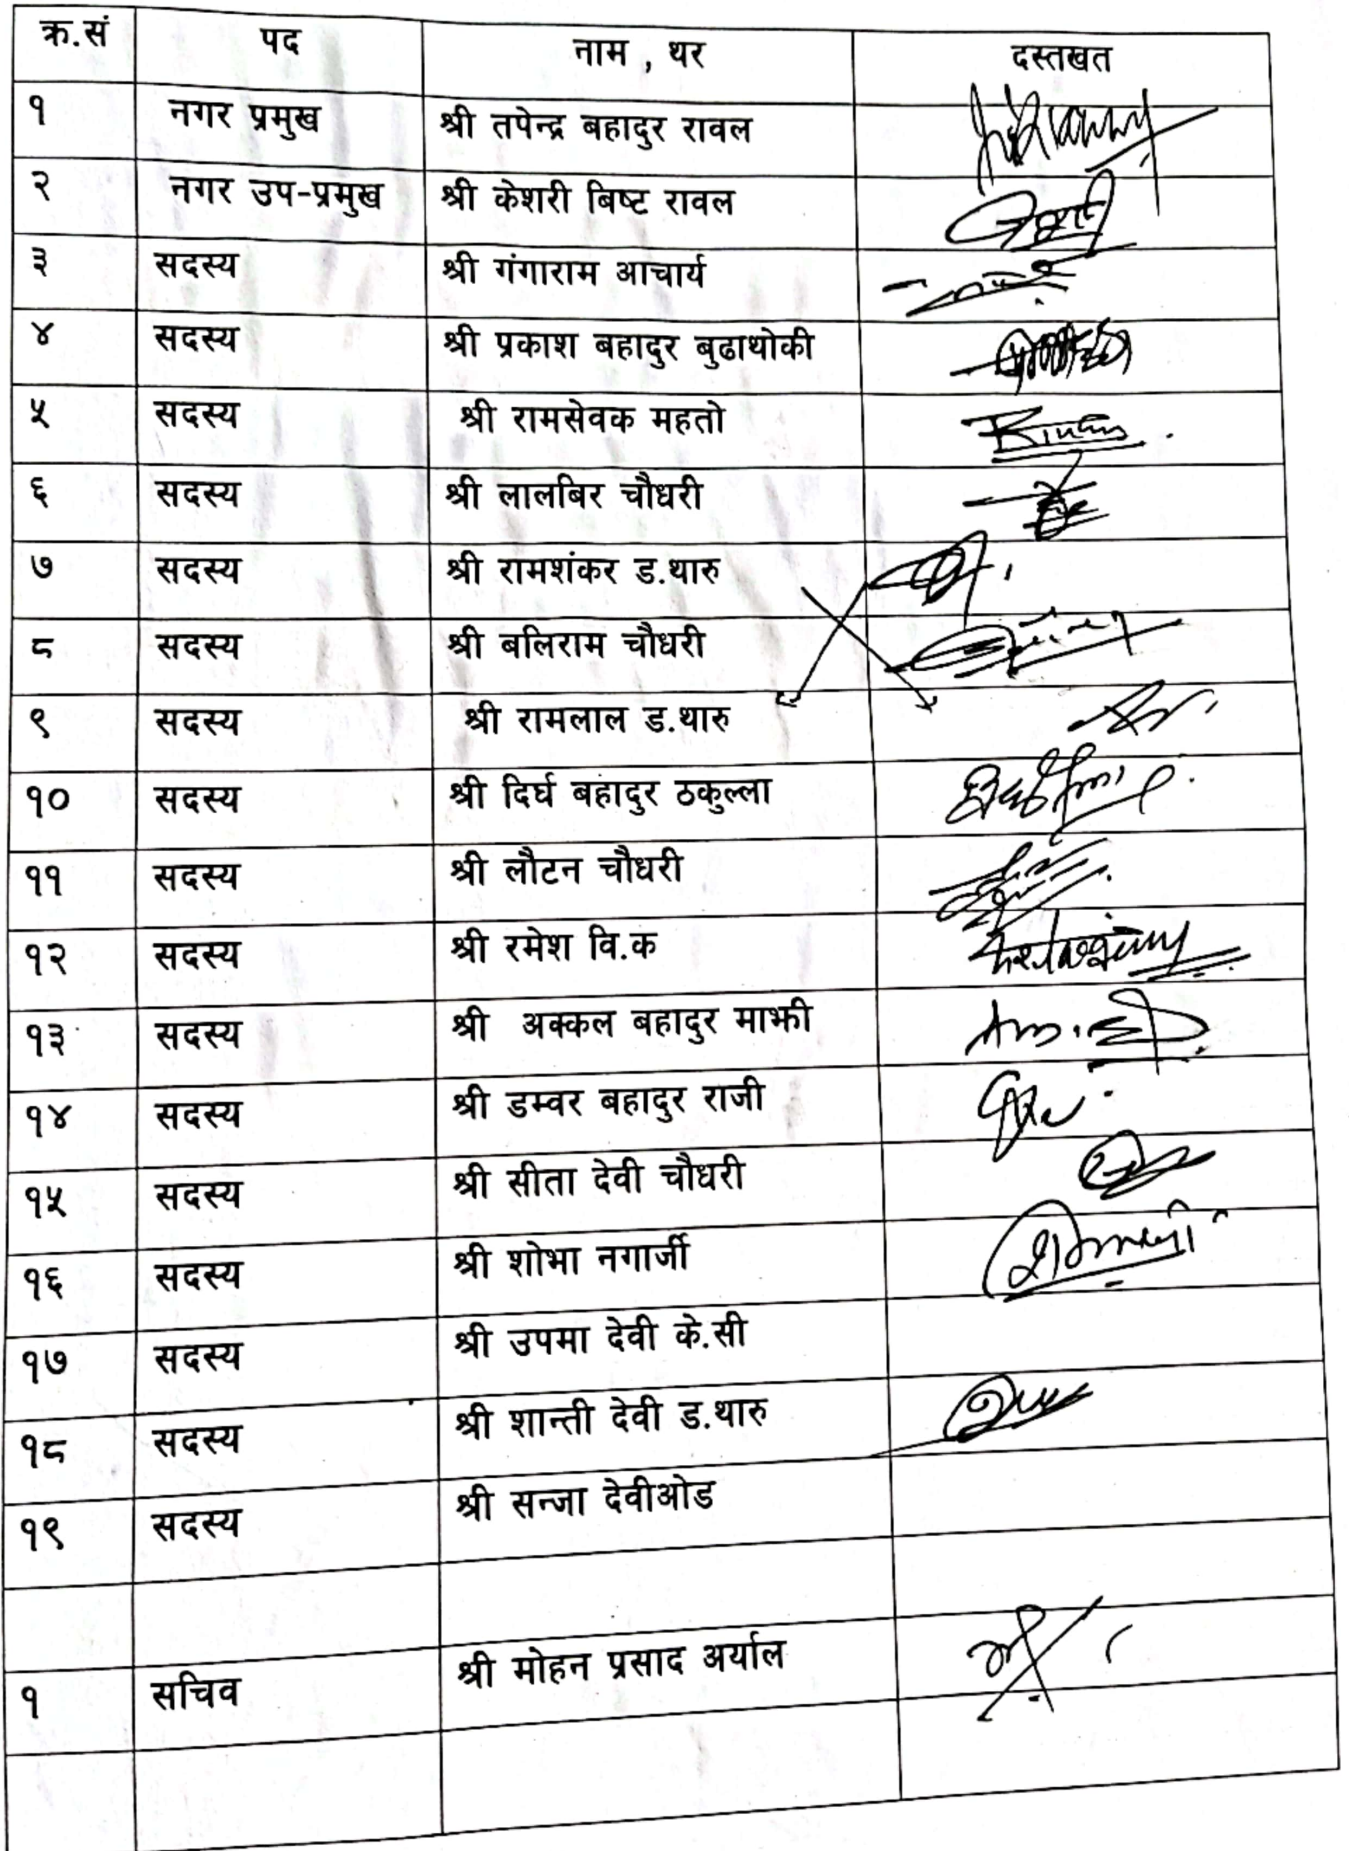 क्र.सं पद नाम , थर दस्तखत
१ नगर प्रमुख श्री तपेन्द्र बहादुर रावल
२ नगर उप-प्रमुख श्री केशरी बिष्ट रावल
३ सदस्य श्री गंगाराम आचार्य
४ सदस्य श्री प्रकाश बहादुर बुढाथोकी
५ सदस्य श्री रामसेवक महतो
६ सदस्य श्री लालबिर चौधरी
७ सदस्य श्री रामशंकर ड.थारु
८ सदस्य श्री बलिराम चौधरी
९ सदस्य श्री रामलाल ड.थारु
१० सदस्य श्री दिर्घ बहादुर ठकुल्ला
११ सदस्य श्री लौटन चौधरी
१२ सदस्य श्री रमेश वि.क
१३ सदस्य श्री अक्कल बहादुर माझी
१४ सदस्य श्री डम्वर बहादुर राजी
१५ सदस्य श्री सीता देवी चौधरी
१६ सदस्य श्री शोभा नगार्जी
१७ सदस्य श्री उपमा देवी के.सी
१८ सदस्य श्री शान्ती देवी ड.थारु
१९ सदस्य श्री सन्जा देवीओड
१ सचिव श्री मोहन प्रसाद अर्याल